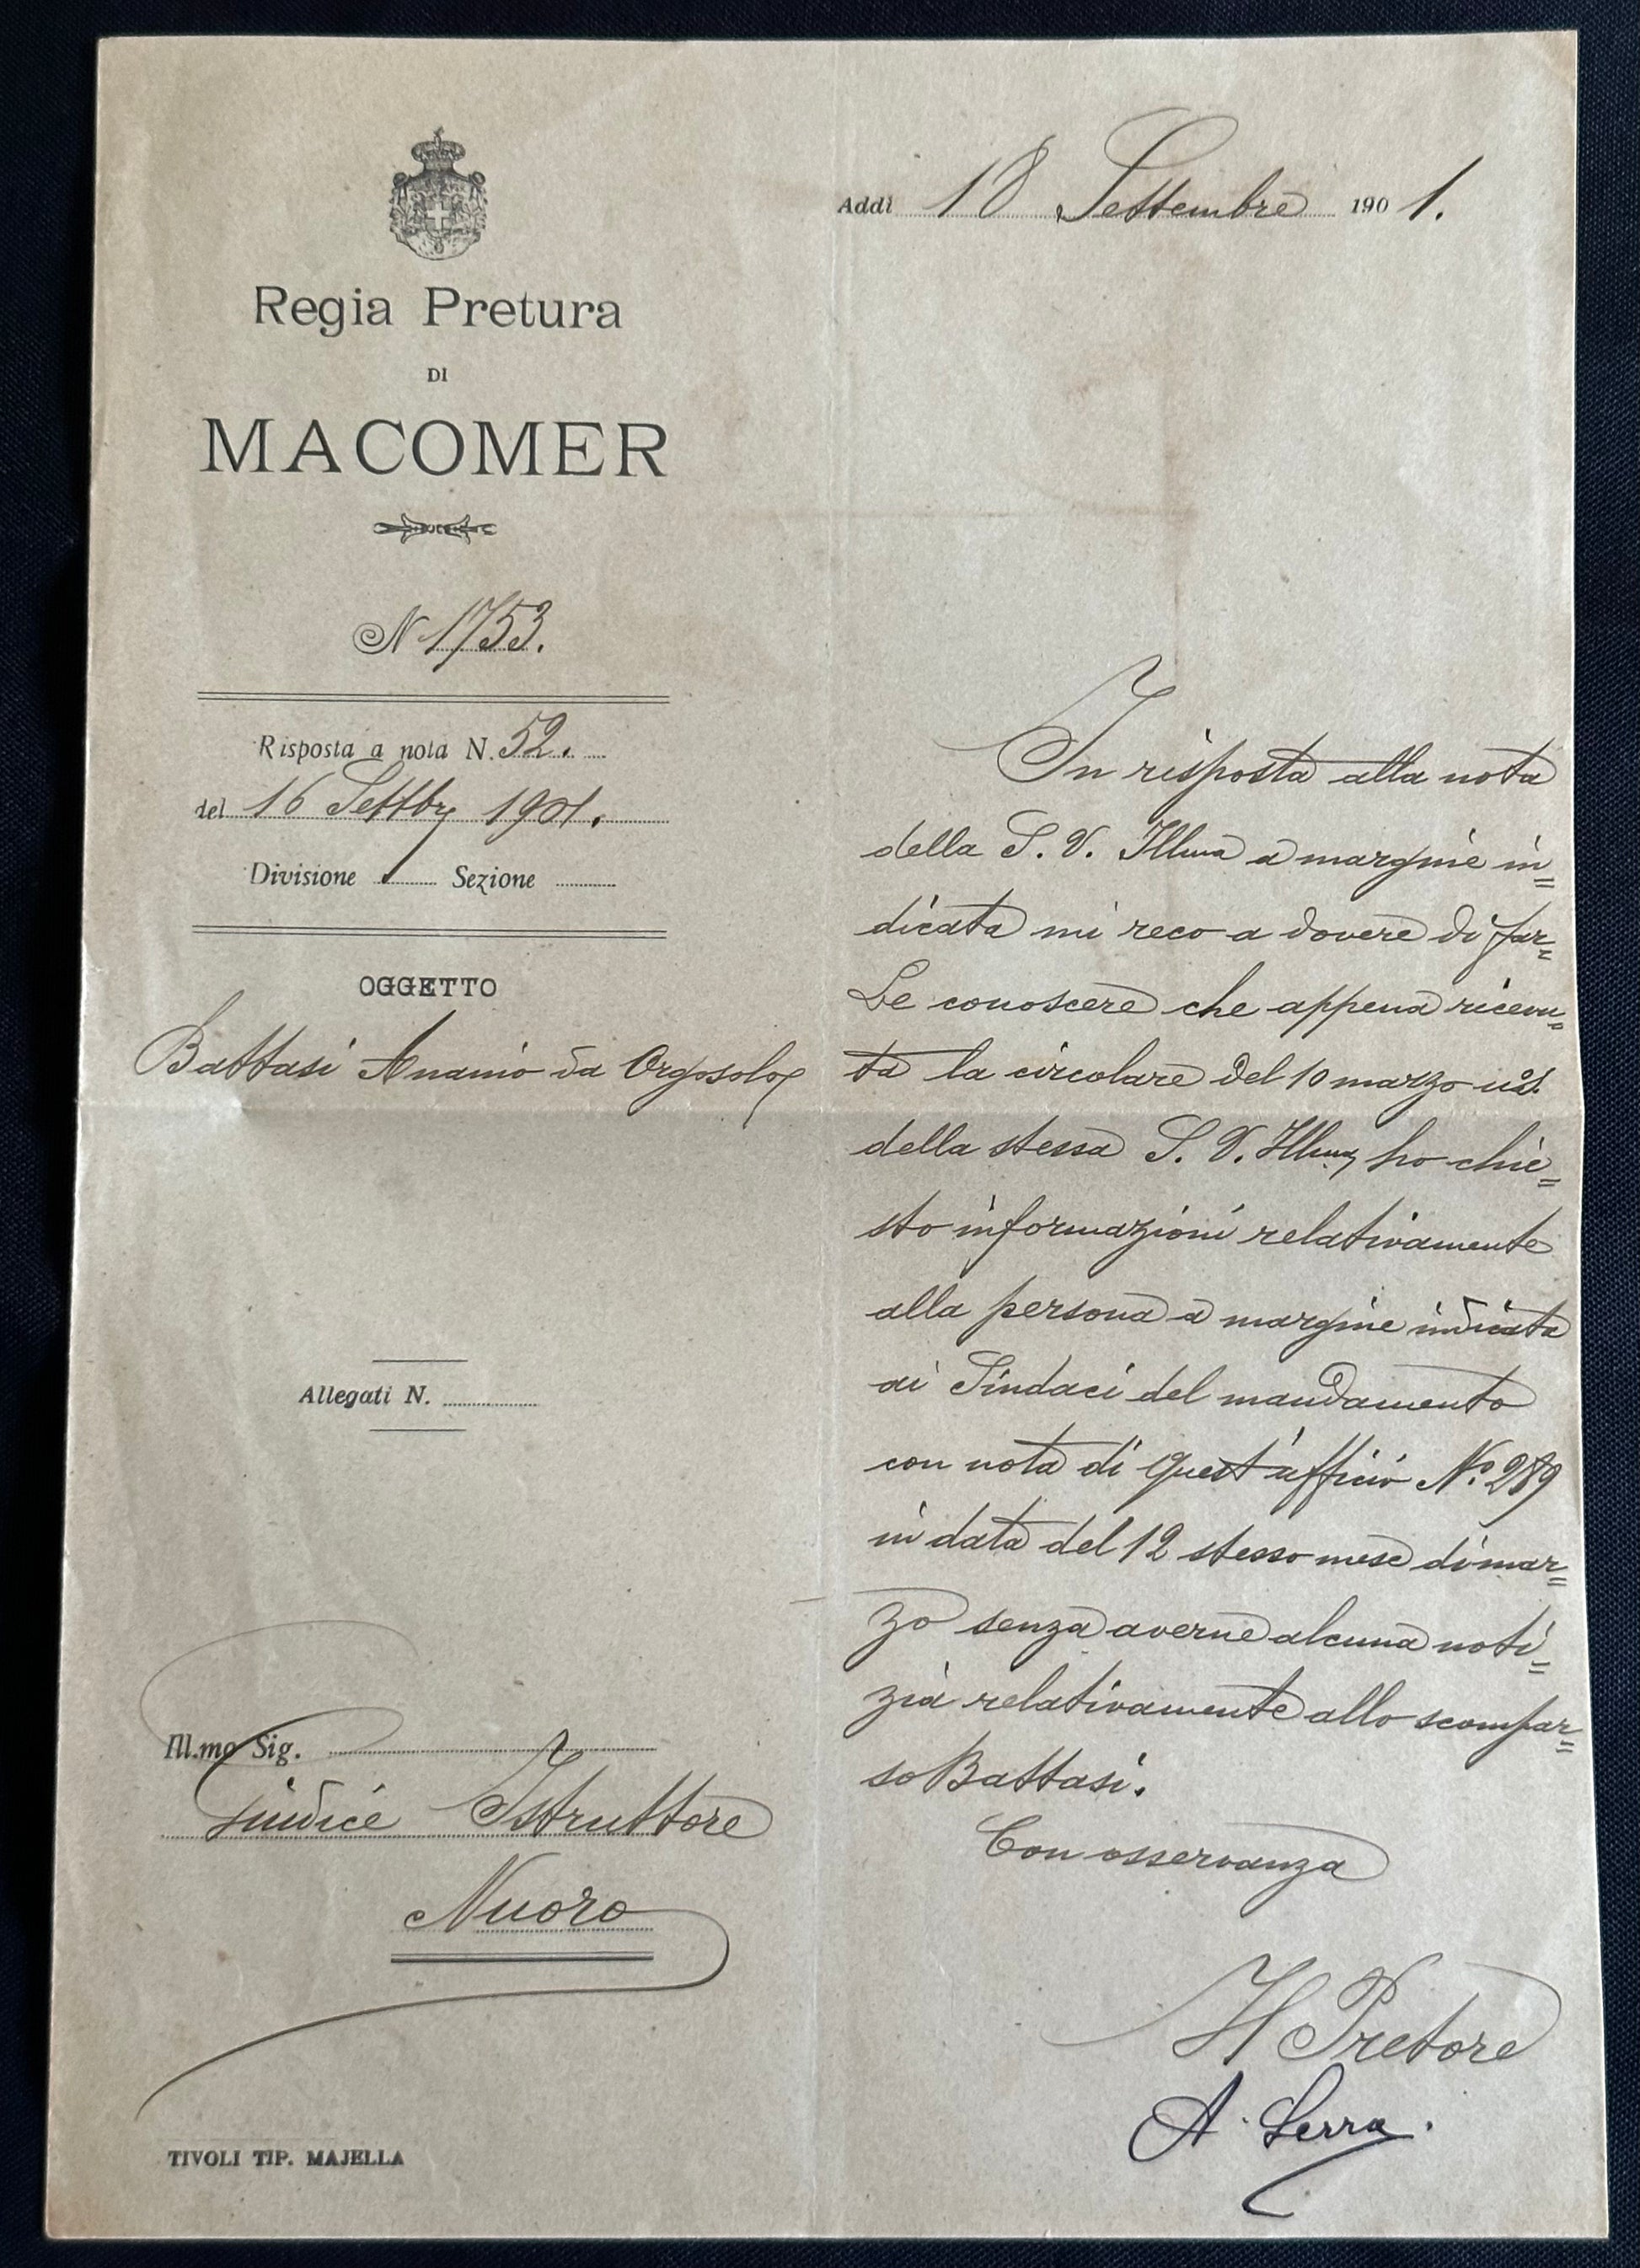 Regia Pretura
DI
MACOMER
N 1753.
Risposta a nota N. 52.
del 16 Settbr 1901.
Divisione Sezione
OGGETTO
Battasi Ananio da Orgosolo
Allegati N.
Ill.mo Sig.
Giudice Istruttore
Nuoro
TIVOLI TIP. MAJELLA
Addì 18 Settembre 1901.
In risposta alla nota
della S. V. Illma a margine in=
dicata mi reco a dovere di far=
Le conoscere che appena ricevu=
ta la circolare del 10 marzo
della stessa S. V. Illma, ho chie=
sto informazioni relativamente
alla persona a margine indicata
ai Sindaci del mandamento
con nota di quest'ufficio No. 289
in data del 12 stesso mese di mar=
zo senza averne alcuna noti=
zia relativamente allo scompar=
so Battasi.
Con osservanza
Il Pretore
A. Serra.